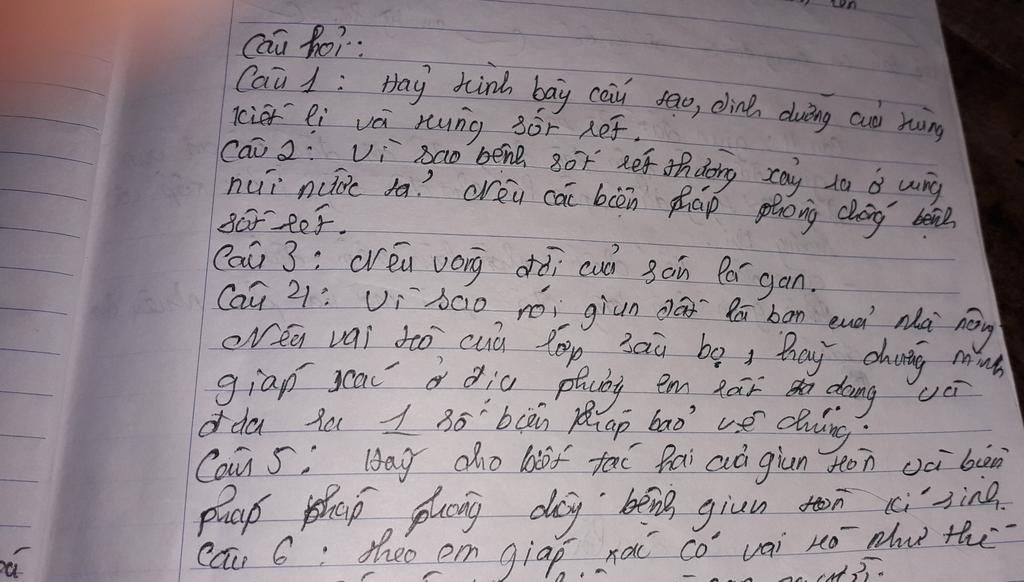 Câu hỏi:
Câu 1: Hãy trình bày cấu tạo, dinh dưỡng của trùng
kiết lị và trùng sốt rét.
Câu 2: Vì sao bệnh sốt rét thường xảy ra ở vùng
núi nước ta? Nêu các biện pháp phòng chống bệnh
sốt rét.
Câu 3: Nêu vòng đời của sán lá gan.
Câu 4: Vì sao nói giun đất là bạn của nhà nông.
Nêu vai trò của lớp sâu bọ, hãy chứng minh
giáp xác ở địa phương em rất đa dạng và
đưa ra 1 số biện pháp bảo vệ chúng.
Câu 5: Hãy cho biết tác hại của giun tròn và biện
pháp pháp phòng chống bệnh giun tròn kí sinh.
Câu 6: theo em giáp xác có vai trò như thế